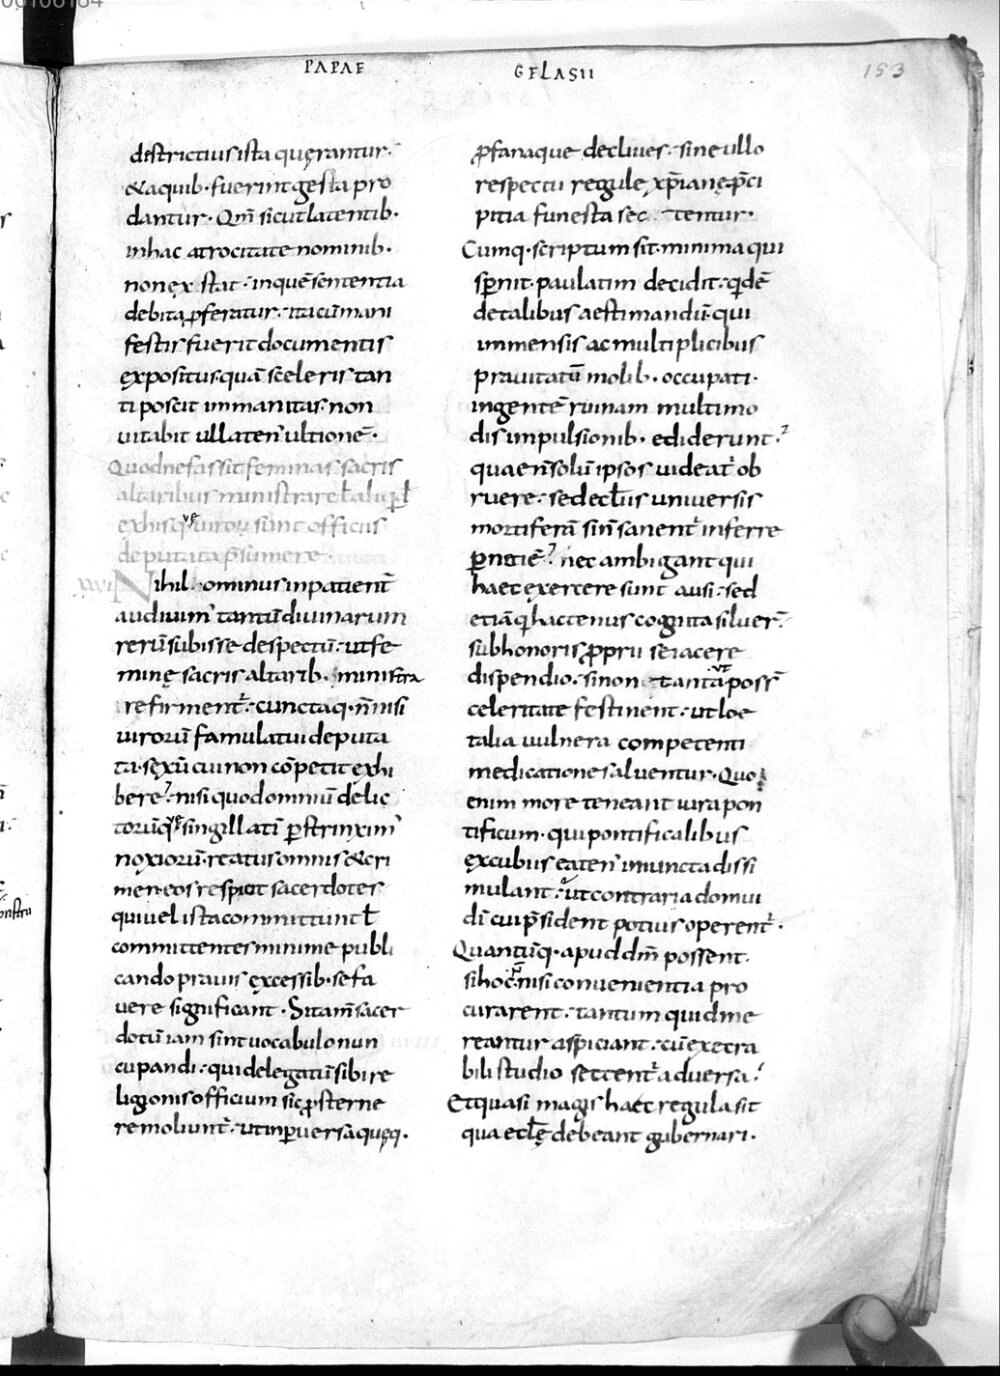 00106184
PAPAE GELASII
153
districtius ista quęrantur·
& a quib· fuerint gesta pro
dantur· Qm̄ sicut latentib·
in hac atrocitate nominib·
non exstat· in quē sententia
debita ꝓferatur· ita cū mani
festis fuerit documentis
expositus quā sceleris tan
ti poscit inmanitas· non
uitabit ullaten' ultionē·
Quod nefas sit feminas sacris
altaribus ministrare ł aliqd
ex his quę uirorū sunt officiis
deputata p̄sumere·
xxvi Nihilominus inpatient̄
audiuim' tantū diuinarum
rerū subisse despectū· ut fe
minę sacris altarib· ministra
re firment̄· cunctaq· n̄ nisi
uirorū famulatui deputa
ta· sexū cui non cōpetit exhi
bere? nisi quod omniū delic
torū quę singillatī pstrinxim'
noxiorū· reatus omnis & cri
men· eos respicit sacerdotes
qui uel ista committunt ł
committentes minime publi
cando prauis excessib· se fa
uere significant· Si tam̄ sacer
dotū iam sint uocabulo nun
cupandi· qui delegatū sibi re
ligionis officium sic ꝓsterne
re moliunt̄· ut in puersa quęq·
ꝓfanaque decliues· sine ullo
respectu regulę xp̄ianę p̄ci
pitia funesta sec tentur·
Cumq· scriptum sit· minima qui
spernit· paulatim decidit· qd ē
de talibus aestimandū· qui
immensis ac multiplicibus
prauitatū molib· occupati·
ingentē ruinam multimo
dis impulsionib· ediderunt?
quae n̄ solū ipsos uideat̄ ob
ruere· sed eccłiis uniuersis
mortiferā si n̄ sanent̄ inferre
pnitiē? nec ambigant qui
haec exercere sunt ausi· sed
etiā q hactenus cognita siluer̄·
sub honoris ꝓprii se iacere
dispendio· si non tanta ut poss̄
celeritate festinent· ut lae
talia uulnera competenti
medicatione saluentur· Quo
enim more teneant iura pon
tificum· qui pontificalibus
excubiis eaten' iniuncta dissi
mulant· ut contraria domui
dī cui p̄sident potius operent̄·
Quantūq· apud dm̄ possent·
si hoc nisi conuenientia pro
curarent· tantum quid me
reantur aspiciant· cū execra
bili studio sectent̄ aduersa?
Et quasi magis haec regula sit
qua eccłę debeant gubernari·